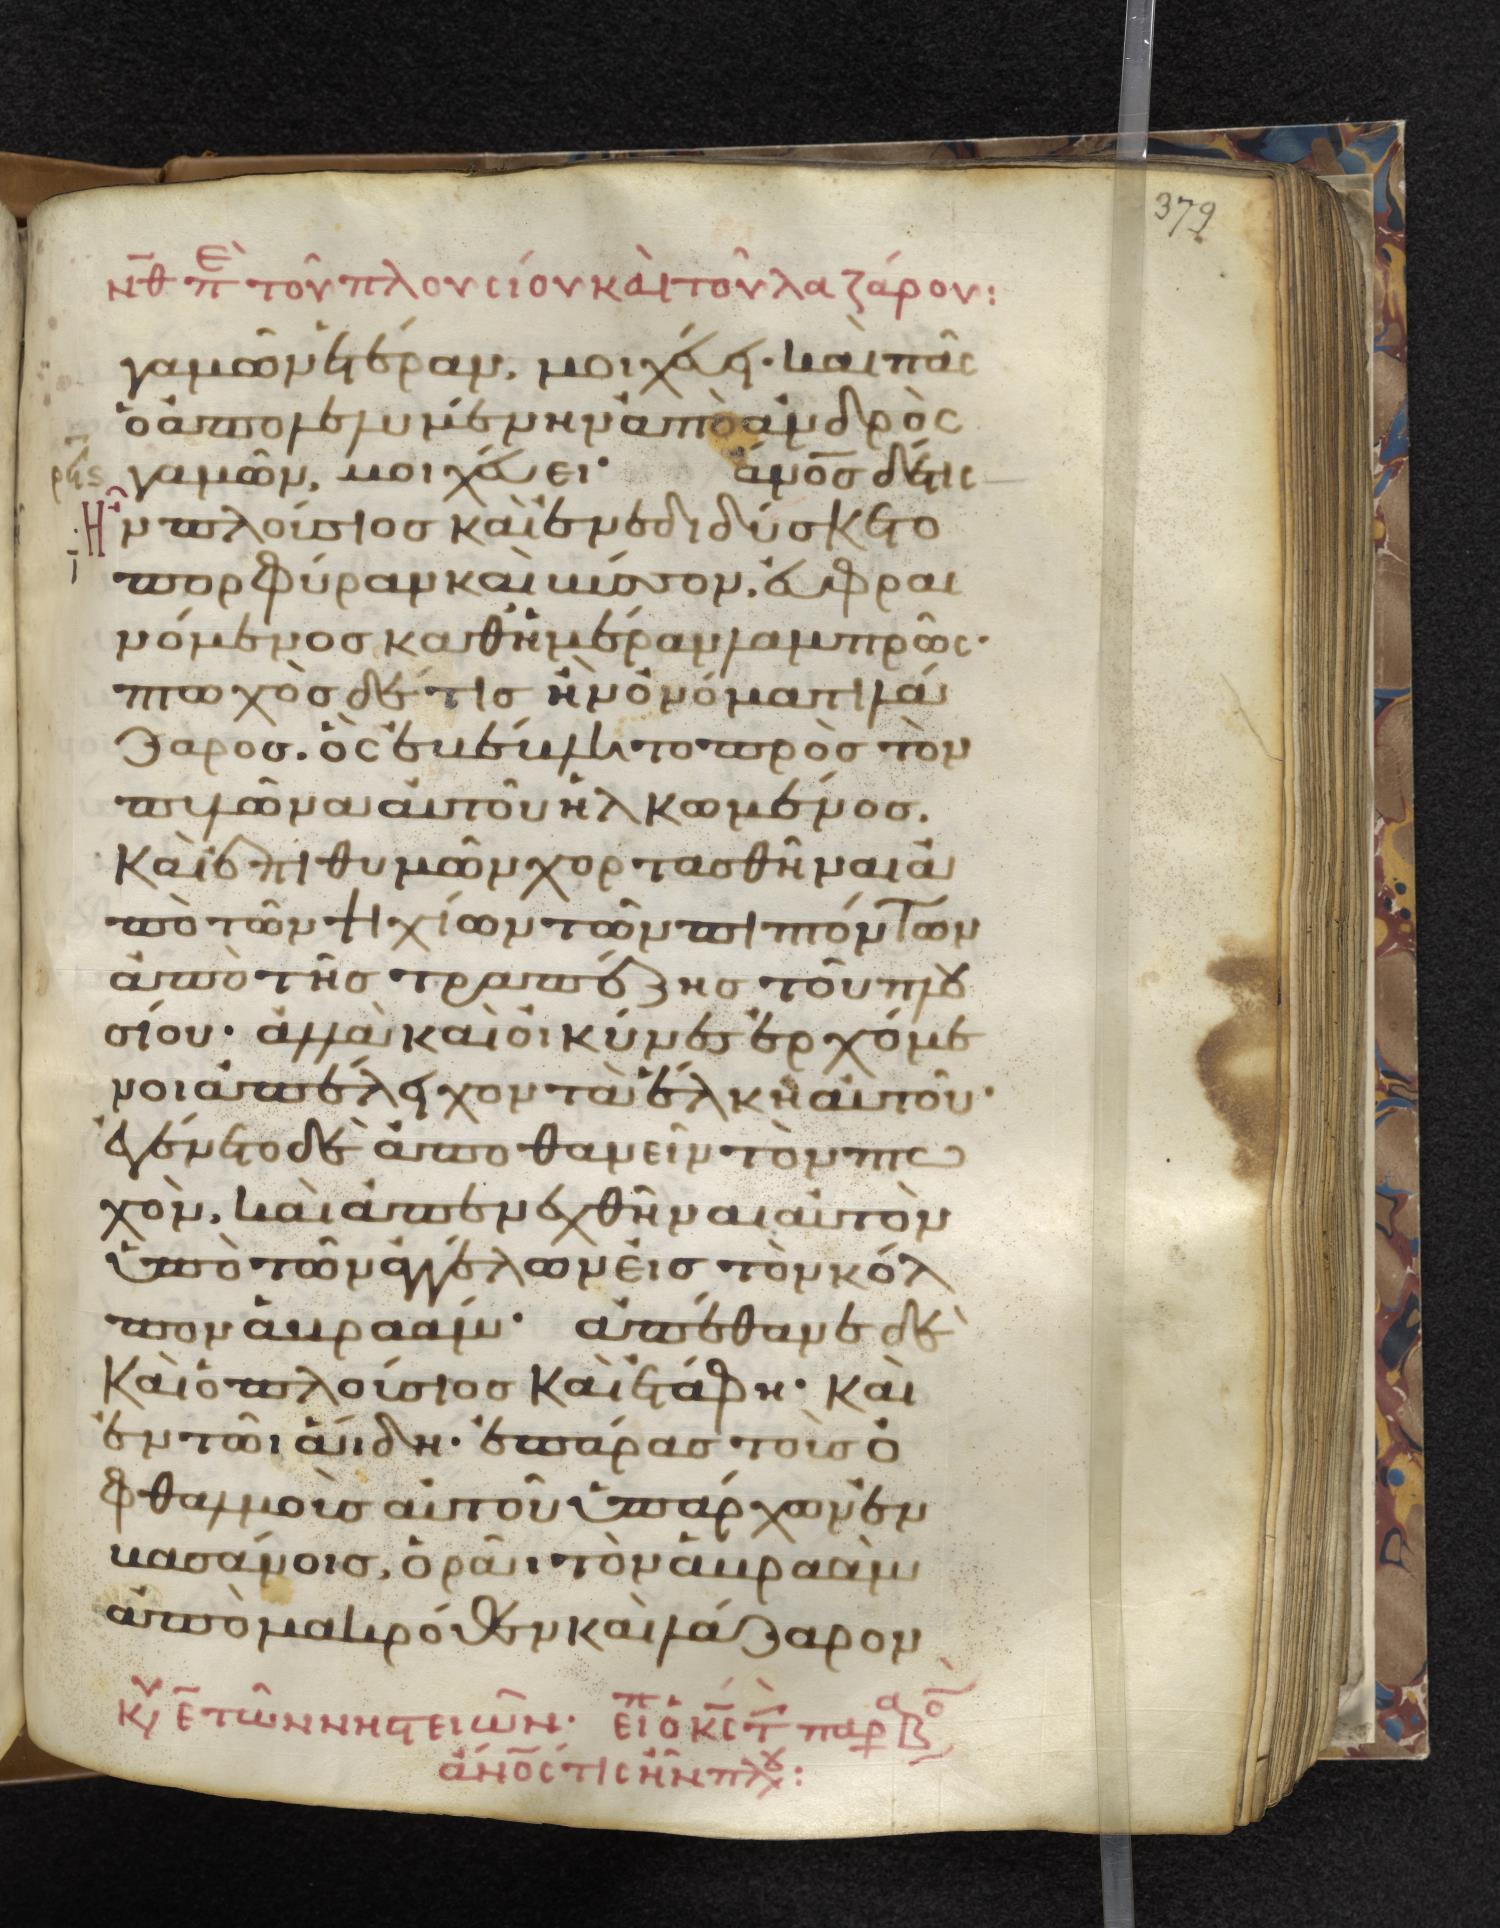 379
ν̅θ̅ πε τοῦ πλουσίου καὶ τοῦ λαζάρου:
γαμῶν ἑτέραν, μοιχεύει· καὶ πᾶς
ὁ ἀπολελυμένην ἀπὸ ἀνδρὸς
γαμῶν, μοιχεύει· ἄν̅ο̅σ̅ δέ τις
Ἦν πλούσιος καὶ ἐνεδιδύσκετο
πορφύραν καὶ βύσσον, εὐφραι
νόμενος καθημέραν λαμπρῶς·
πτωχὸς δέ τις ἦν ὀνόματι λά
ζαρος. ὃς ἐβέβλητο πρὸς τὸν
πυλῶνα αὐτοῦ ἡλκωμένος.
καὶ ἐπιθυμῶν χορτασθῆναι ἀ
πὸ τῶν ψιχίων τῶν πιπτόντων
ἀπὸ τῆς τραπέζης τοῦ πλου
σίου· ἀλλὰ καὶ οἱ κύνες ἐρχόμε
νοι ἀπέλειχον τὰ ἕλκη αὐτοῦ·
ἐγένετο δὲ ἀποθανεῖν τὸν πτω
χὸν, καὶ ἀπενεχθῆναι αὐτὸν
ὑπὸ τῶν ἀγγέλων εἰς τὸν κόλ
πον ἀβραάμ· ἀπέθανε δὲ
καὶ ὁ πλούσιος καὶ ἐτάφη· καὶ
ἐν τῶι ἅιδη· ἐπάρας τοὺς ὀ
φθαλμοὺς αὐτοῦ ὑπάρχων ἐν
βασάνοις, ὁρᾶι τὸν ἀβραὰμ
ἀπὸ μακρόθεν καὶ λάζαρον
κυ ε̅ τῶν νηστειῶν· εἶπ ὁ κ̅ς̅ τ̅ παρβο
ἄν̅ο̅ς̅ τις ἦν πλου: